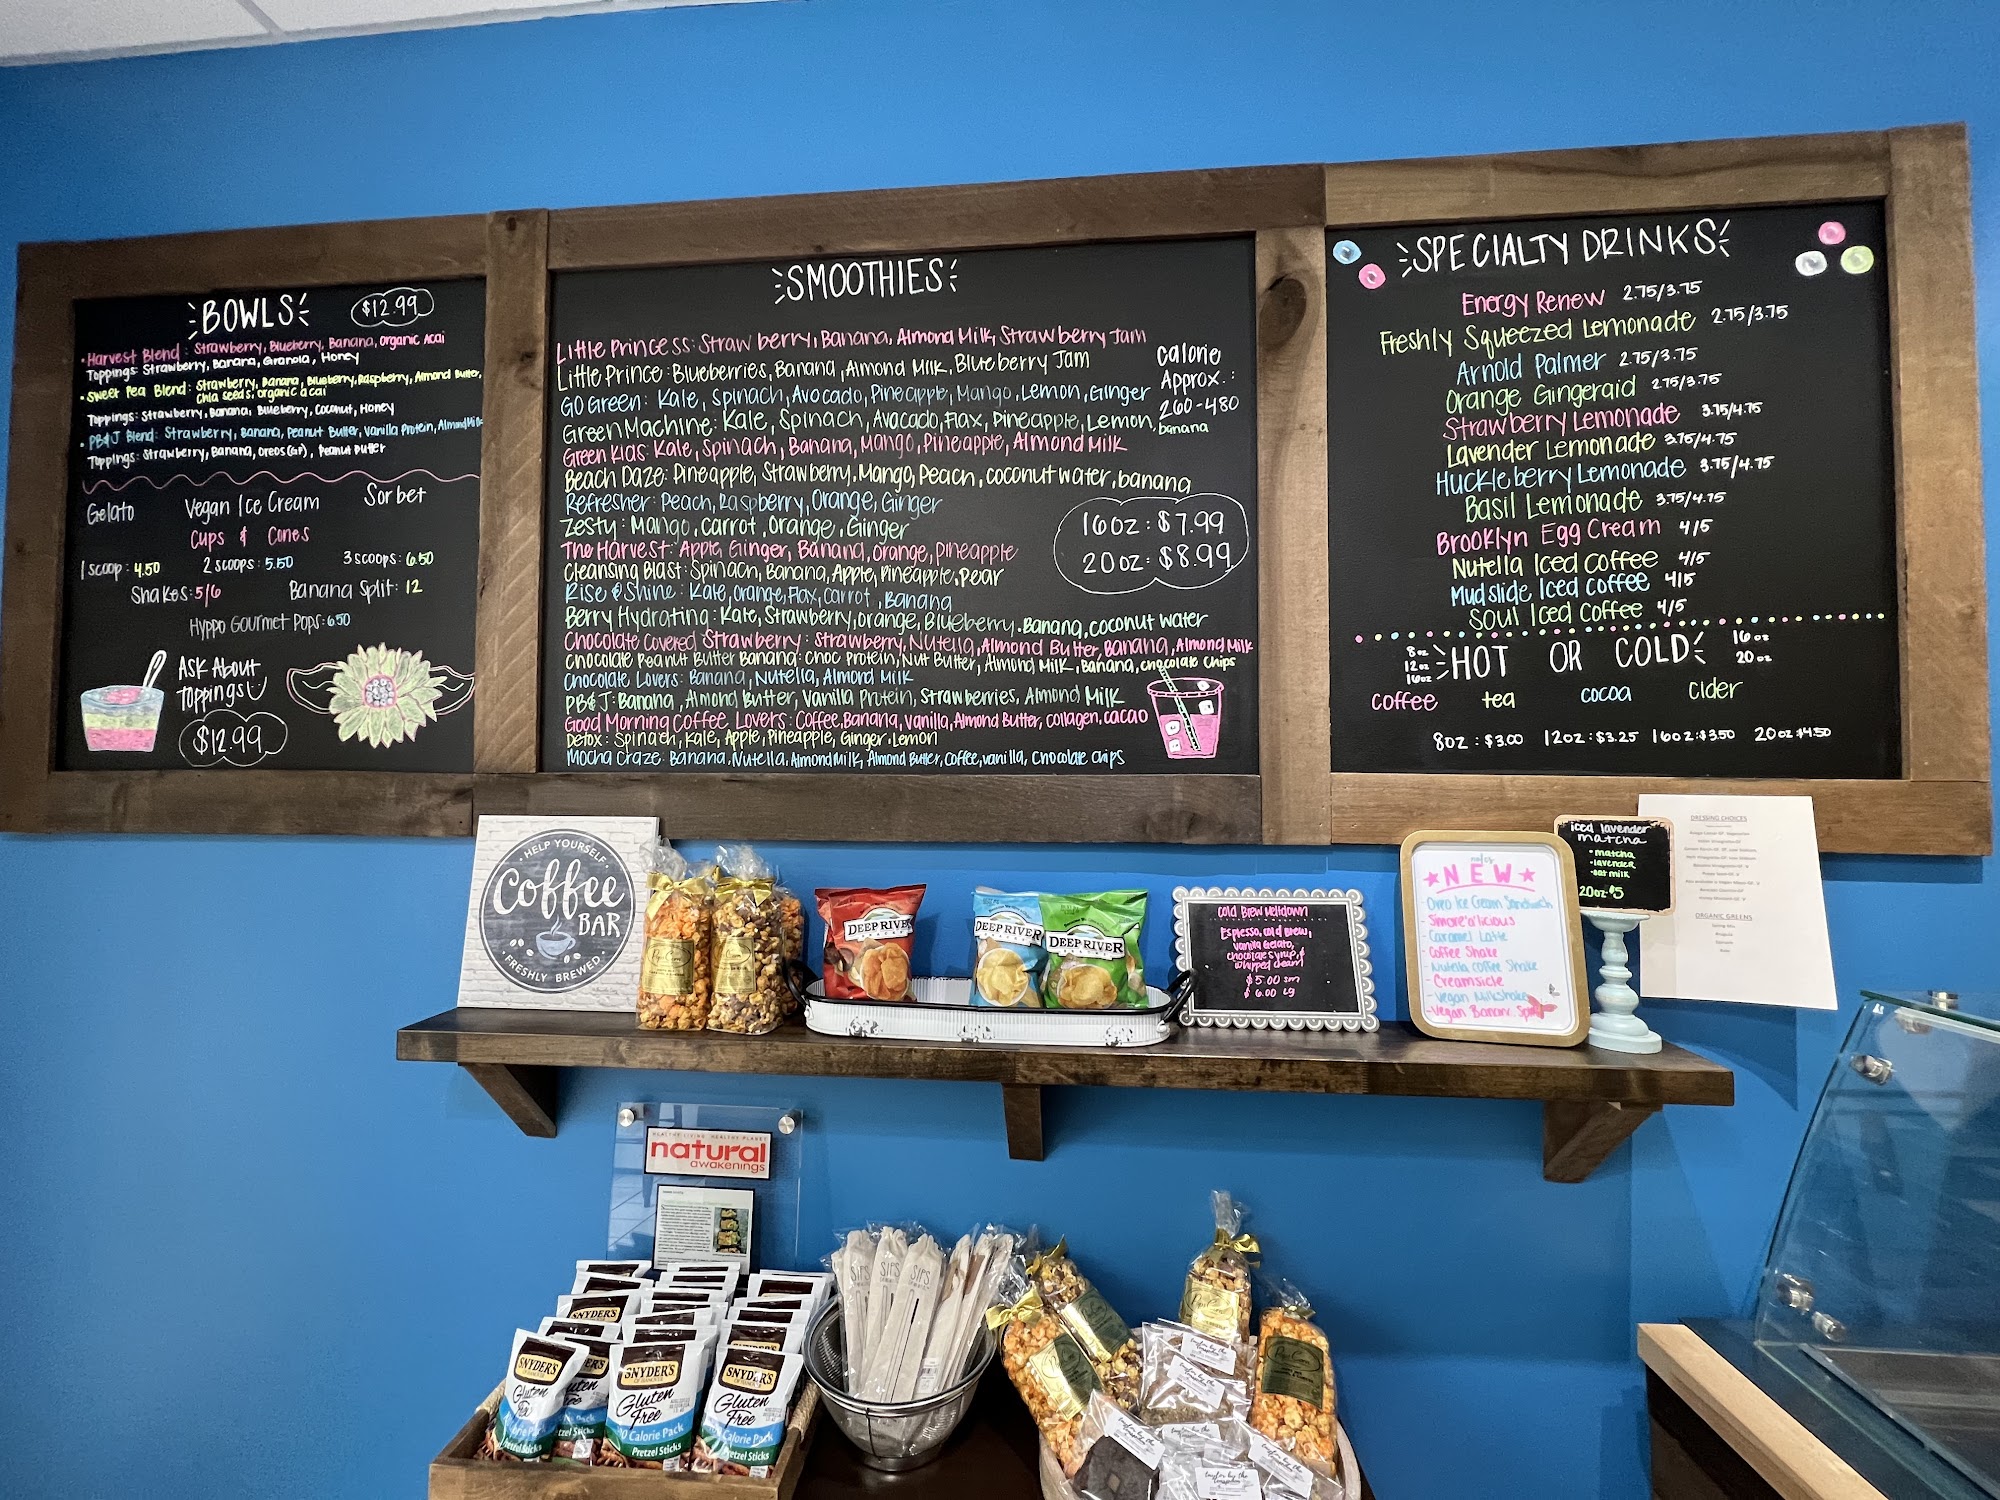 BOWLS
$12.99
• Harvest Blend: Strawberry, Blueberry, Banana, Organic Acai
Toppings: Strawberry, Banana, Granola, Honey
• Sweet Pea Blend: Strawberry, Banana, Blueberry, Raspberry, Almond Butter,
chia seeds, organic acai
Toppings: Strawberry, Banana, Blueberry, Coconut, Honey
• PB&J Blend: Strawberry, Banana, Peanut Butter, Vanilla Protein, Almond Milk
Toppings: Strawberry, Banana, Oreos (GF), Peanut Butter
Gelato Vegan Ice Cream Sorbet
Cups & Cones
1 scoop: 4.50 2 scoops: 5.50 3 scoops: 6.50
Shakes: 5/6 Banana Split: 12
Hyppo Gourmet Pops: 6.50
Ask About
Toppings
$12.99
SMOOTHIES
Little Princess: Strawberry, Banana, Almond Milk, Strawberry Jam
Little Prince: Blueberries, Banana, Almond Milk, Blueberry Jam
Go Green: Kale, Spinach, Avocado, Pineapple, Mango, Lemon, Ginger
Green Machine: Kale, Spinach, Avocado, Flax, Pineapple, Lemon, banana
Green Kias: Kale, Spinach, Banana, Mango, Pineapple, Almond Milk
Beach Daze: Pineapple, Strawberry, Mango, Peach, coconut water, banana
Refresher: Peach, Raspberry, Orange, Ginger
Zesty: Mango, Carrot, Orange, Ginger
The Harvest: Apple, Ginger, Banana, Orange, Pineapple
Cleansing Blast: Spinach, Banana, Apple, Pineapple, Pear
Rise & Shine: Kale, Orange, Flax, Carrot, Banana
Berry Hydrating: Kale, Strawberry, Orange, Blueberry, Banana, coconut water
Chocolate Covered Strawberry: Strawberry, Nutella, Almond Butter, Banana, Almond Milk
Chocolate Peanut Butter Banana: Choc Protein, Nut Butter, Almond Milk, Banana, chocolate chips
Chocolate Lovers: Banana, Nutella, Almond Milk
PB&J: Banana, Almond Butter, Vanilla Protein, Strawberries, Almond Milk
Good Morning Coffee Lovers: Coffee, Banana, Vanilla, Almond Butter, collagen, cacao
Detox: Spinach, Kale, Apple, Pineapple, Ginger, Lemon
Mocha Craze: Banana, Nutella, Almond Milk, Almond Butter, Coffee, vanilla, Chocolate Chips
Calorie
Approx.:
260-480
16 oz: $7.99
20 oz: $8.99
SPECIALTY DRINKS
Energy Renew 2.75/3.75
Freshly Squeezed Lemonade 2.75/3.75
Arnold Palmer 2.75/3.75
Orange Gingeraid 2.75/3.75
Strawberry Lemonade 3.75/4.75
Lavender Lemonade 3.75/4.75
Huckleberry Lemonade 3.75/4.75
Basil Lemonade 3.75/4.75
Brooklyn Egg Cream 4/5
Nutella Iced Coffee 4/5
Mudslide Iced Coffee 4/5
Soul Iced Coffee 4/5
8oz
12oz
16oz
HOT OR COLD
16oz
20oz
coffee tea cocoa cider
8oz: $3.00 12oz: $3.25 16oz: $3.50 20oz $4.50
HELP YOURSELF
Coffee
BAR
FRESHLY BREWED
DEEP RIVER
DEEP RIVER
DEEP RIVER
Cold Brew Meltdown
Espresso, cold Brew,
vanilla Gelato,
chocolate syrup, &
whipped cream
$5.00 sm
$6.00 Lg
NEW
- Oreo Ice Cream Sandwich
- Smore'a'licious
- Caramel Latte
- Coffee Shake
- Nutella Coffee Shake
- Creamsicle
- Vegan Milkshake
- Vegan Banana
iced lavender
matcha
• matcha
• lavender
• oat milk
20oz-$5
DRESSING CHOICES
ORGANIC GREENS
HEALTHY LIVING HEALTHY PLANET
natural
awakenings
SIPS
SIPS
SIPS
SNYDER'S
SNYDER'S
OF HANOVER
Gluten
Free
Calorie Pack
Pretzel Sticks
SNYDER'S
OF HANOVER
Gluten
Free
Calorie Pack
Pretzel Sticks
SNYDER'S
OF HANOVER
Gluten
Free
Calorie Pack
Pretzel Sticks